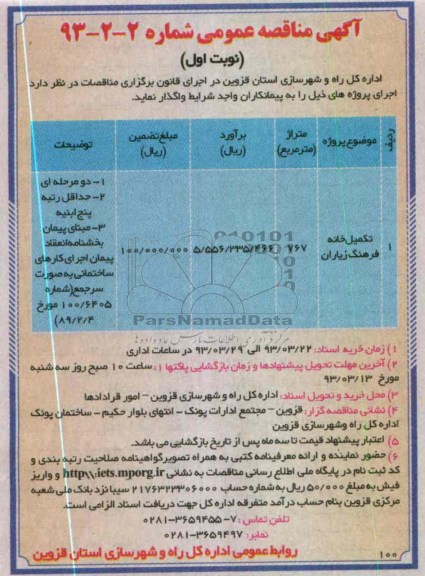 آگهی مناقصه عمومی شماره ۲-۲-۹۳
(نوبت اول)
اداره کل راه و شهرسازی استان قزوین در اجرای قانون برگزاری مناقصات در نظر دارد
اجرای پروژه های ذیل را به پیمانکاران واجد شرایط واگذار نماید.
ردیف
موضوع پروژه
متراژ (مترمربع)
برآورد (ریال)
مبلغ تضمین (ریال)
توضیحات
۱
تکمیل خانه فرهنگ زیاران
۷۶۷
۵/۵۵۶/۳۳۵/۴۶۶
۱۰۰/۰۰۰/۰۰۰
۱- دو مرحله ای
۲- حداقل رتبه
پنج ابنیه
۳- مبنای پیمان
بخشنامه انعقاد
پیمان اجرای کارهای
ساختمانی به صورت
سرجمع (شماره
۱۰۰/۶۴۰۵ مورخ
۸۹/۲/۴)
ParsNamadData
۱) زمان خرید اسناد: ۹۳/۰۳/۲۲ الی ۹۳/۰۳/۲۹ در ساعات اداری
۲) آخرین مهلت تحویل پیشنهادها و زمان بازگشایی پاکتها: ساعت ۱۰ صبح روز سه شنبه
مورخ ۹۳/۰۳/۱۳
۳) محل خرید و تحویل اسناد: اداره کل راه و شهرسازی قزوین - امور قرادادها
۴) نشانی مناقصه گزار: قزوین - مجتمع ادارات پونک - انتهای بلوار حکیم - ساختمان پونک
اداره کل راه وشهرسازی قزوین
۵) اعتبار پیشنهاد قیمت تا سه ماه پس از تاریخ بازگشایی می باشد.
۶) حضور نماینده و ارائه معرفینامه کتبی به همراه تصویرگواهینامه صلاحیت رتبه بندی و
کد ثبت نام در پایگاه ملی اطلاع رسانی مناقصات به نشانی http\\:iets.mporg.ir و واریز
فیش به مبلغ ۵۰/۰۰۰ ریال به شماره حساب ۲۱۷۶۳۲۳۳۰۶۰۰۰ سیبا نزد بانک ملی شعبه
مرکزی قزوین بنام حساب درآمد متفرقه اداره کل جهت دریافت اسناد الزامی است.
تلفن تماس: ۷-۳۶۵۹۴۵۵-۰۲۸۱
نمابر: ۳۶۵۹۴۹۷-۰۲۸۱
روابط عمومی اداره کل راه و شهرسازی استان قزوین
۱۰۰